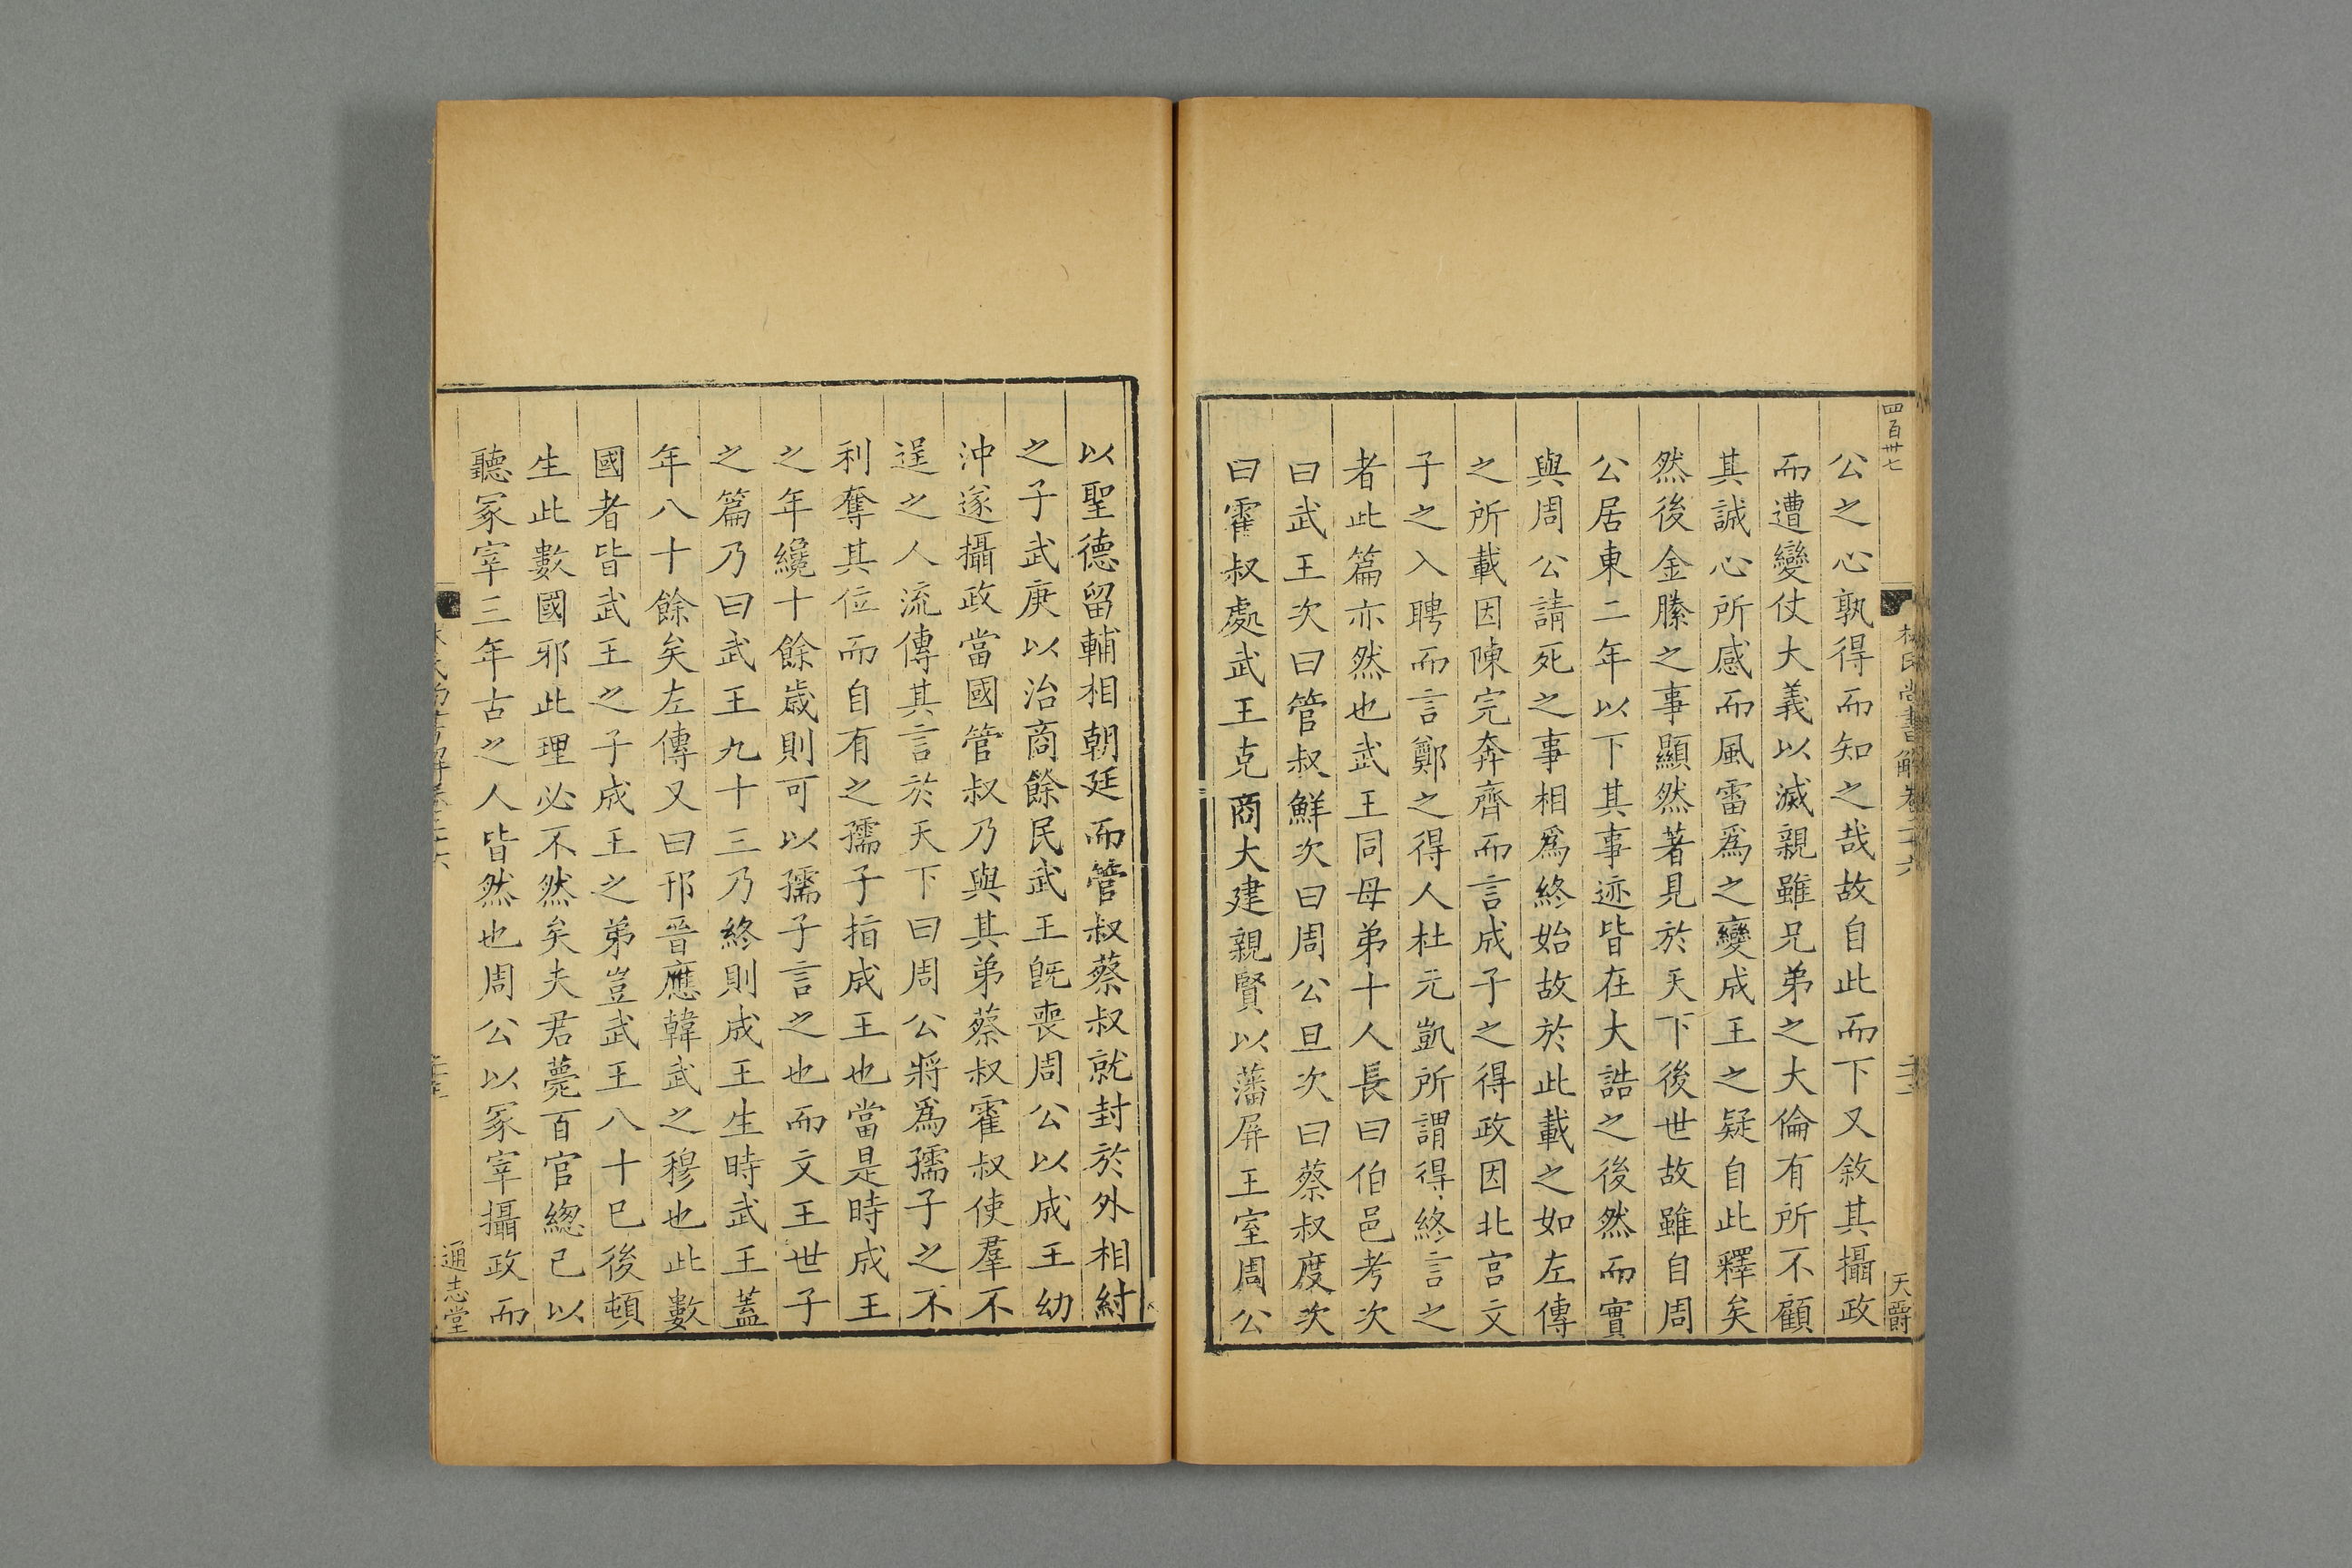 四百卅七
林氏尚書解卷二十六
天爵
公之心孰得而知之哉故自此而下又敘其攝政
而遭變仗大義以滅親雖兄弟之大倫有所不顧
其誠心所感而風雷爲之變成王之疑自此釋矣
然後金縢之事顯然著見於天下後世故雖自周
公居東二年以下其事迹皆在大誥之後然而實
與周公請死之事相爲終始故於此載之如左傳
之所載因陳完奔齊而言成子之得政因北宮文
子之入聘而言鄭之得人杜元凱所謂得終言之
者此篇亦然也武王同母弟十人長曰伯邑考次
曰武王次曰管叔鮮次曰周公旦次曰蔡叔度次
曰霍叔處武王克商大建親賢以藩屏王室周公
以聖德留輔相朝廷而管叔蔡叔就封於外相紂
之子武庚以治商餘民武王旣喪周公以成王幼
沖遂攝政當國管叔乃與其弟蔡叔霍叔使羣不
逞之人流傳其言於天下曰周公將爲孺子之不
利奪其位而自有之孺子指成王也當是時成王
之年纔十餘歲則可以孺子言之也而文王世子
之篇乃曰武王九十三乃終則成王生時武王蓋
年八十餘矣左傳又曰邘晉應韓武之穆也此數
國者皆武王之子成王之弟豈武王八十巳後頓
生此數國邪此理必不然矣夫君薨百官緫己以
聽冢宰三年古之人皆然也周公以冢宰攝政而
通志堂